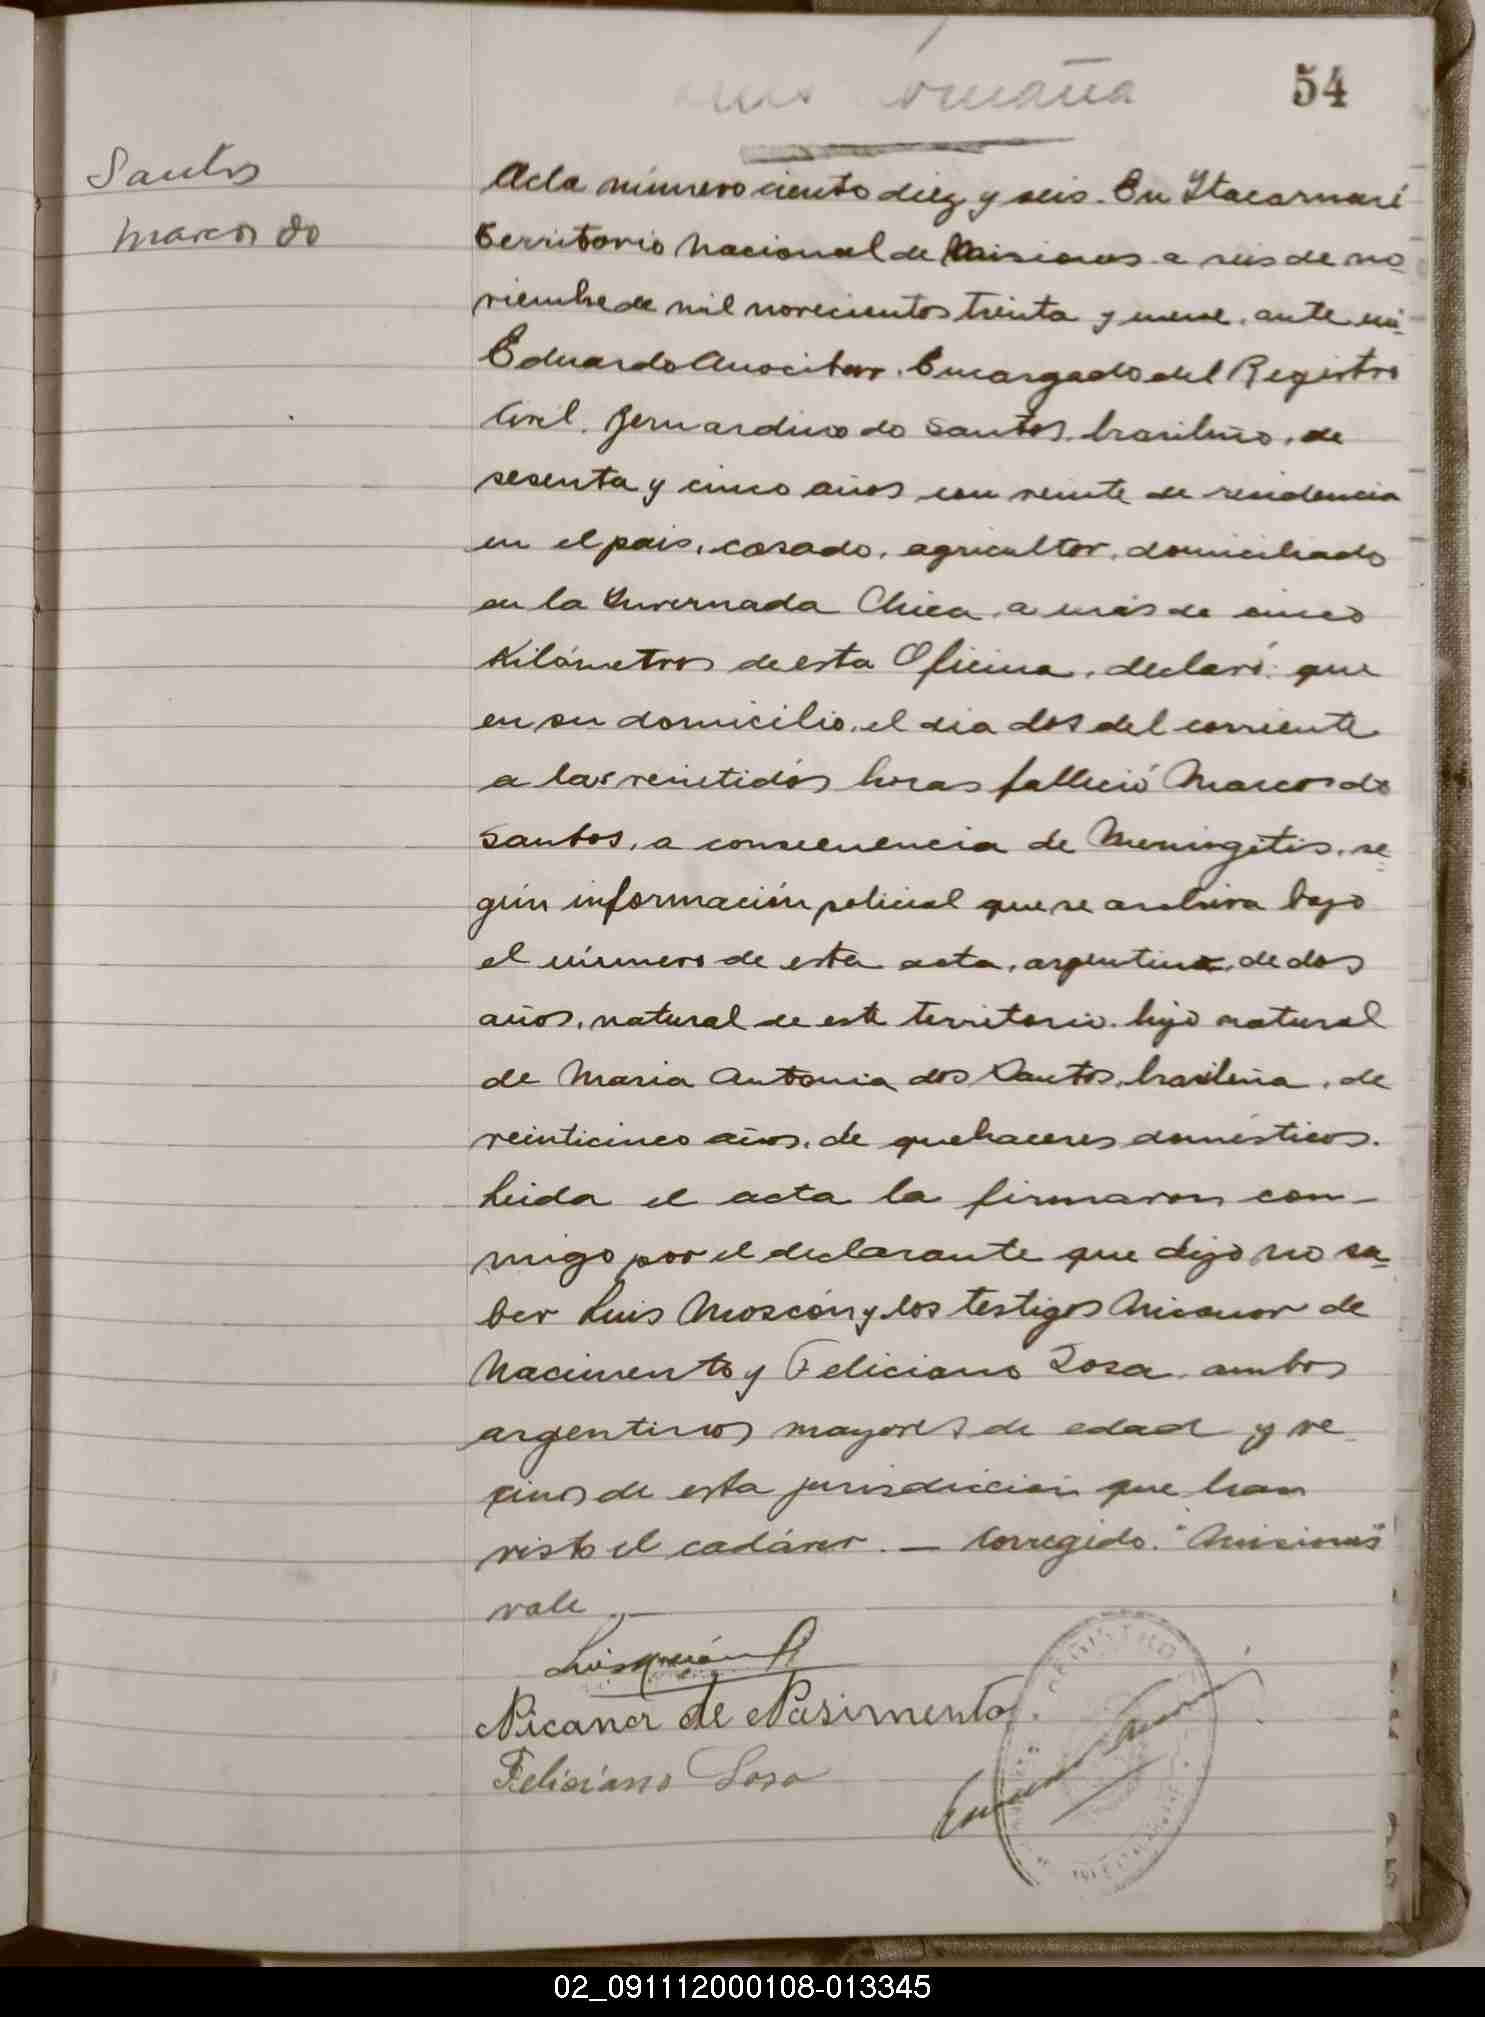 54
Santos
Marcos do
Acta número ciento diez y seis. En Itacaruaré
Territorio Nacional de Misiones a seis de no-
viembre de mil novecientos treinta y nueve, ante mi
Eduardo Anocibar. Encargado del Registro
Civil, Bernardino do Santos, brasileño, de
sesenta y cinco años con veinte de residencia
en el pais, casado, agricultor, domiciliado
en la Invernada Chica, a más de cinco
Kilómetros de esta Oficina, declaró: que
en su domicilio, el dia dos del corriente
a las veintidós horas falleció Marcos do
Santos, a consecuencia de Meningitis, se-
gún información policial que se archiva bajo
el número de esta acta, argentino, de dos
años, natural de este territorio, hijo natural
de Maria Antonia dos Santos, brasileña, de
veinticinco años, de quehaceres domésticos.
Leida el acta la firmaron con-
migo por el declarante que dijo no sa-
ber Luis Moscón y los testigos Nicanor de
Nacimento y Feliciano Sosa, ambos
argentinos mayores de edad y ve-
cinos de esta jurisdiccion que han
visto el cadáver. — Corregido: "Misiones"
vale. —
Nicanor de Nasimento
Feliciano Sosa
02_091112000108-013345